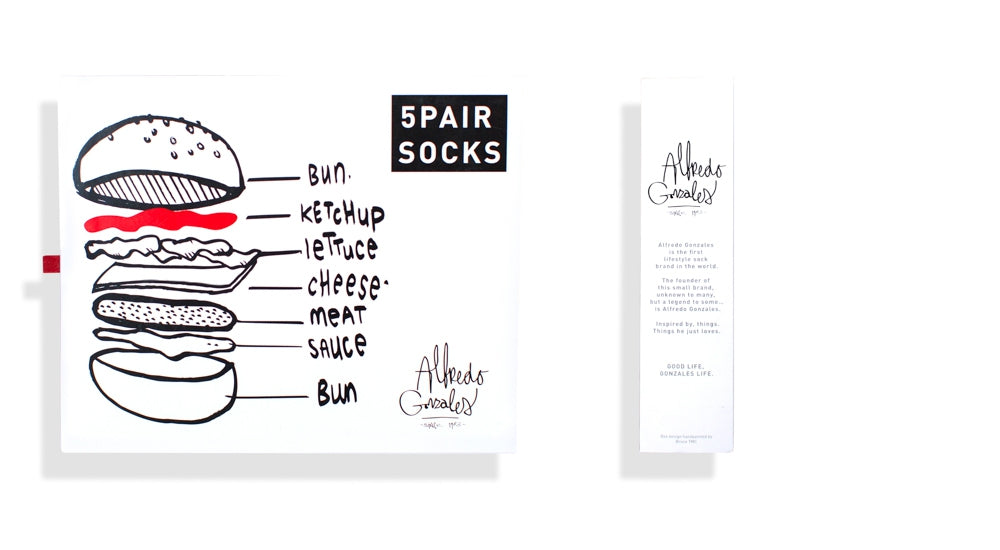 5PAIR
SOCKS
BUN.
KETCHUP
lETTUCE
CHEESE.
MEAT
SAUCE
BUN
Alfredo
Gonzales
Alfredo
Gonzales
Alfredo Gonzales
is the first
lifestyle sock
brand in the world.
The founder of
this small brand,
unknown to many,
but a legend to some...
is Alfredo Gonzales.
Inspired by, things.
Things he just loves.
GOOD LIFE,
GONZALES LIFE.